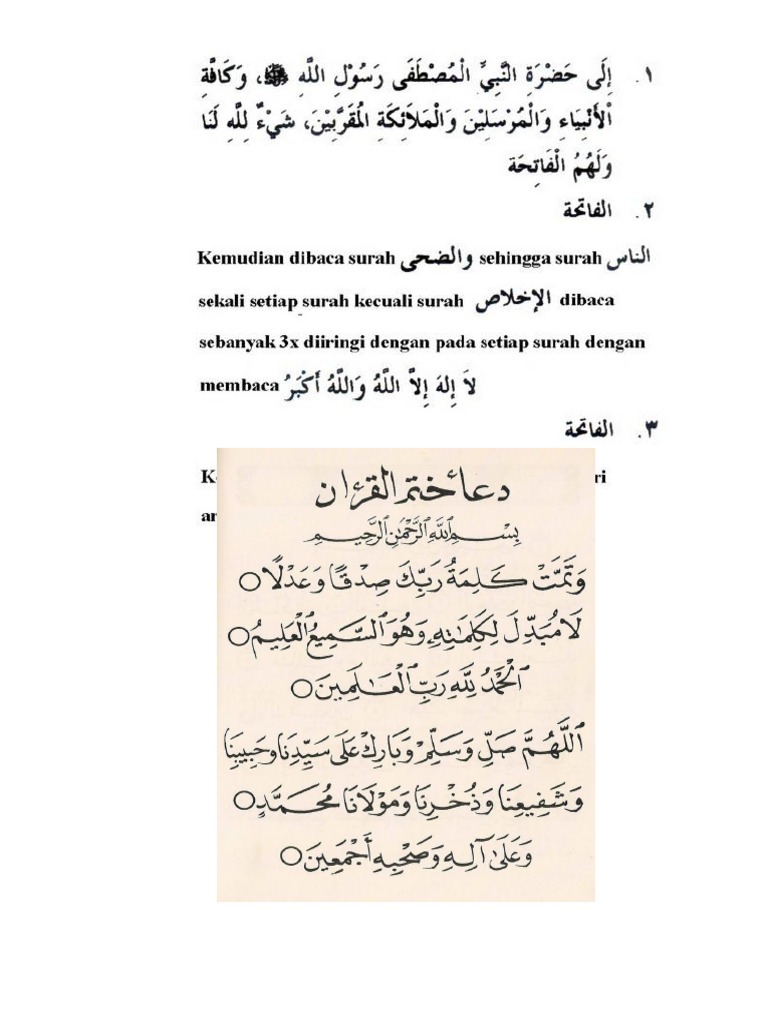 ١. إِلَى حَضْرَةِ النَّبِيِّ الْمُصْطَفَى رَسُوْلِ اللَّهِ ﷺ، وَكَافَّةِ
الْأَنْبِيَاءِ وَالْمُرْسَلِيْنَ وَالْمَلَائِكَةِ الْمُقَرَّبِيْنَ، شَيْءٌ لِلَّهِ لَنَا
وَلَهُمُ الْفَاتِحَة
٢. الفاتحة
Kemudian dibaca surah والضحى sehingga surah الناس
sekali setiap surah kecuali surah الإخلاص dibaca
sebanyak 3x diiringi dengan pada setiap surah dengan
membaca لاَ إِلهَ إِلاَّ اللَّهُ وَاللَّهُ أَكْبَرُ
٣. الفاتحة
دعاء ختم القرءان
بِسْمِ اللَّهِ الرَّحْمَٰنِ الرَّحِيمِ
وَتَمَّتْ كَلِمَةُ رَبِّكَ صِدْقًا وَعَدْلًا ○
لَا مُبَدِّلَ لِكَلِمَاتِهِ وَهُوَ السَّمِيعُ الْعَلِيمُ ○
الْحَمْدُ لِلَّهِ رَبِّ الْعَالَمِينَ ○
اللَّهُمَّ صَلِّ وَسَلِّمْ وَبَارِكْ عَلَى سَيِّدِنَا وَحَبِيبِنَا
وَشَفِيعِنَا وَذُخْرِنَا وَمَوْلَانَا مُحَمَّدٍ ○
وَعَلَىٰ آلِهِ وَصَحْبِهِ أَجْمَعِينَ ○